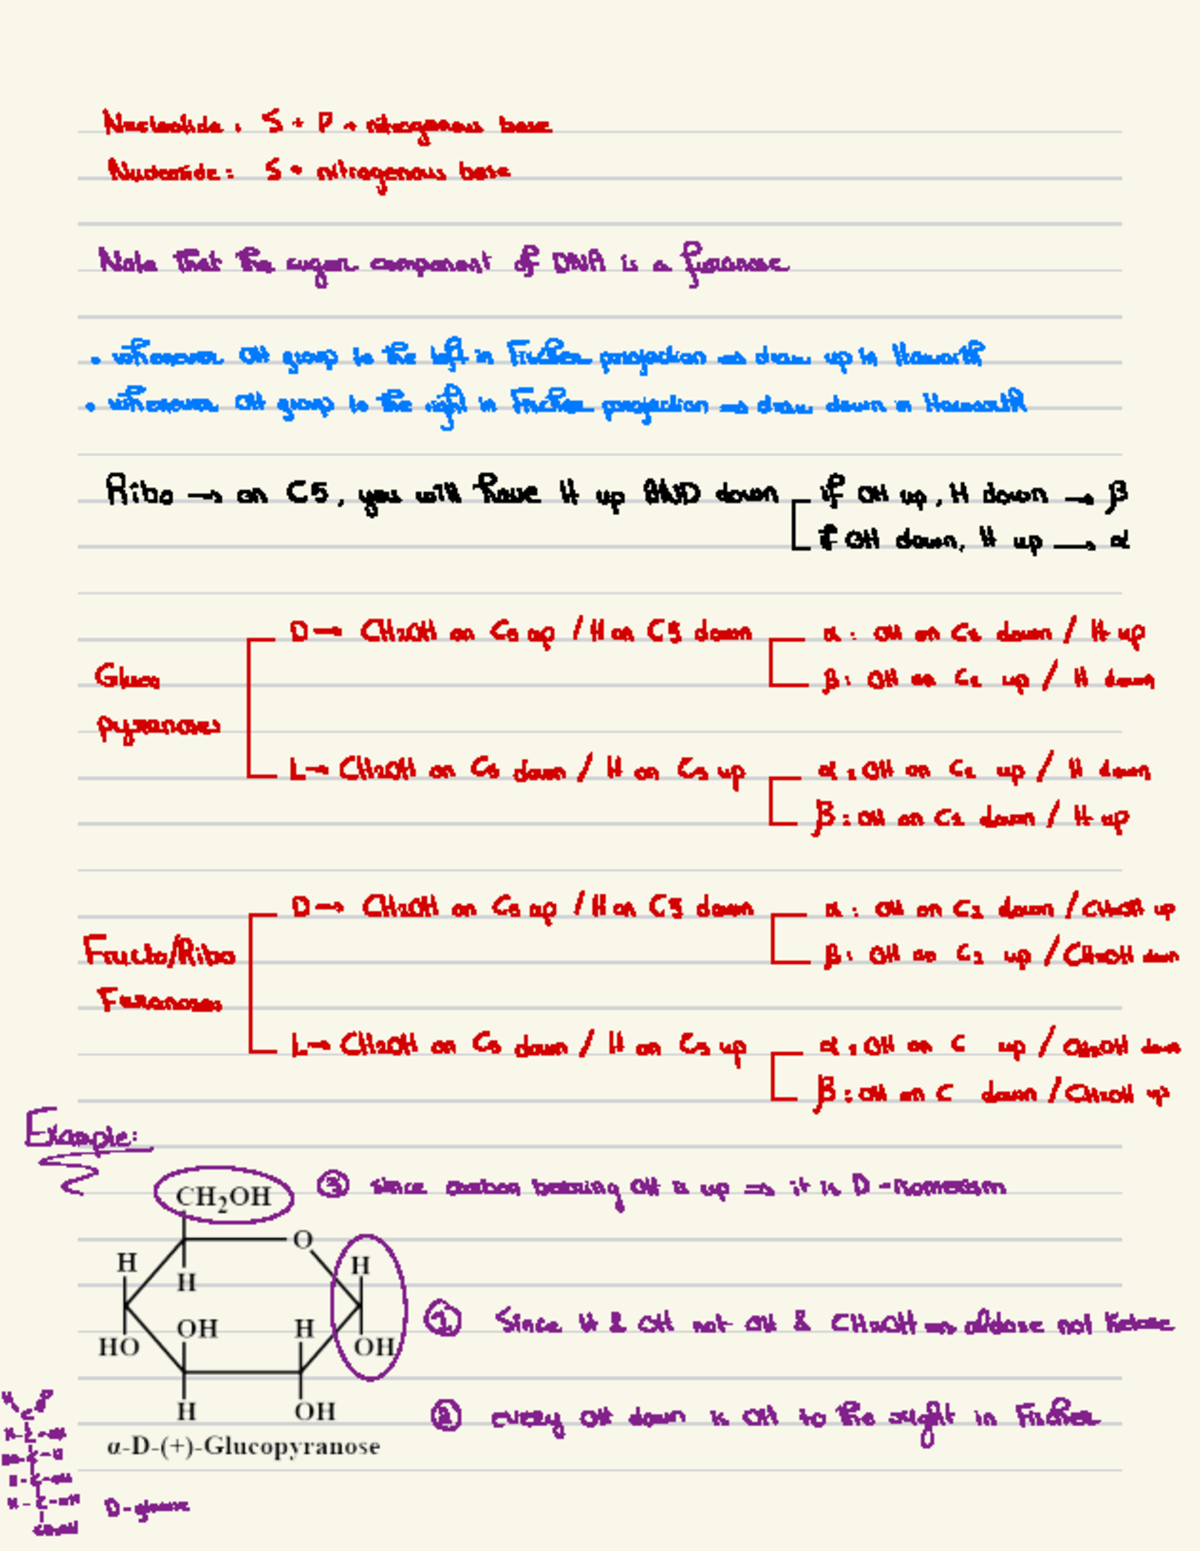 Nucleotide: S + P + nitrogenous base
Nucleoside: S + nitrogenous base
Note that the sugar component of DNA is a furanose
• whenever OH group to the left in Fischer projection ⇒ draw up in Haworth
• whenever OH group to the right in Fischer projection ⇒ draw down in Haworth
Ribo → on C5, you will have H up AND down
if OH up, H down → β
if OH down, H up → α
Gluco pyranoses
D → CH2OH on C5 up / H on C5 down
α: OH on C1 down / H up
β: OH on C1 up / H down
L → CH2OH on C5 down / H on C5 up
α: OH on C1 up / H down
β: OH on C1 down / H up
Fructo/Ribo Furanoses
D → CH2OH on C5 up / H on C5 down
α: OH on C2 down / CH2OH up
β: OH on C2 up / CH2OH down
L → CH2OH on C5 down / H on C5 up
α: OH on C up / CH2OH down
β: OH on C down / CH2OH up
Example:
③ since carbon bearing OH is up ⇒ it is D-isomerism
CH2OH
O
H H
H
OH H
HO OH
① Since H & OH not OH & CH2OH ⇒ aldose not Ketose
H OH
② every OH down is OH to the right in Fischer
α-D-(+)-Glucopyranose
D-glucose